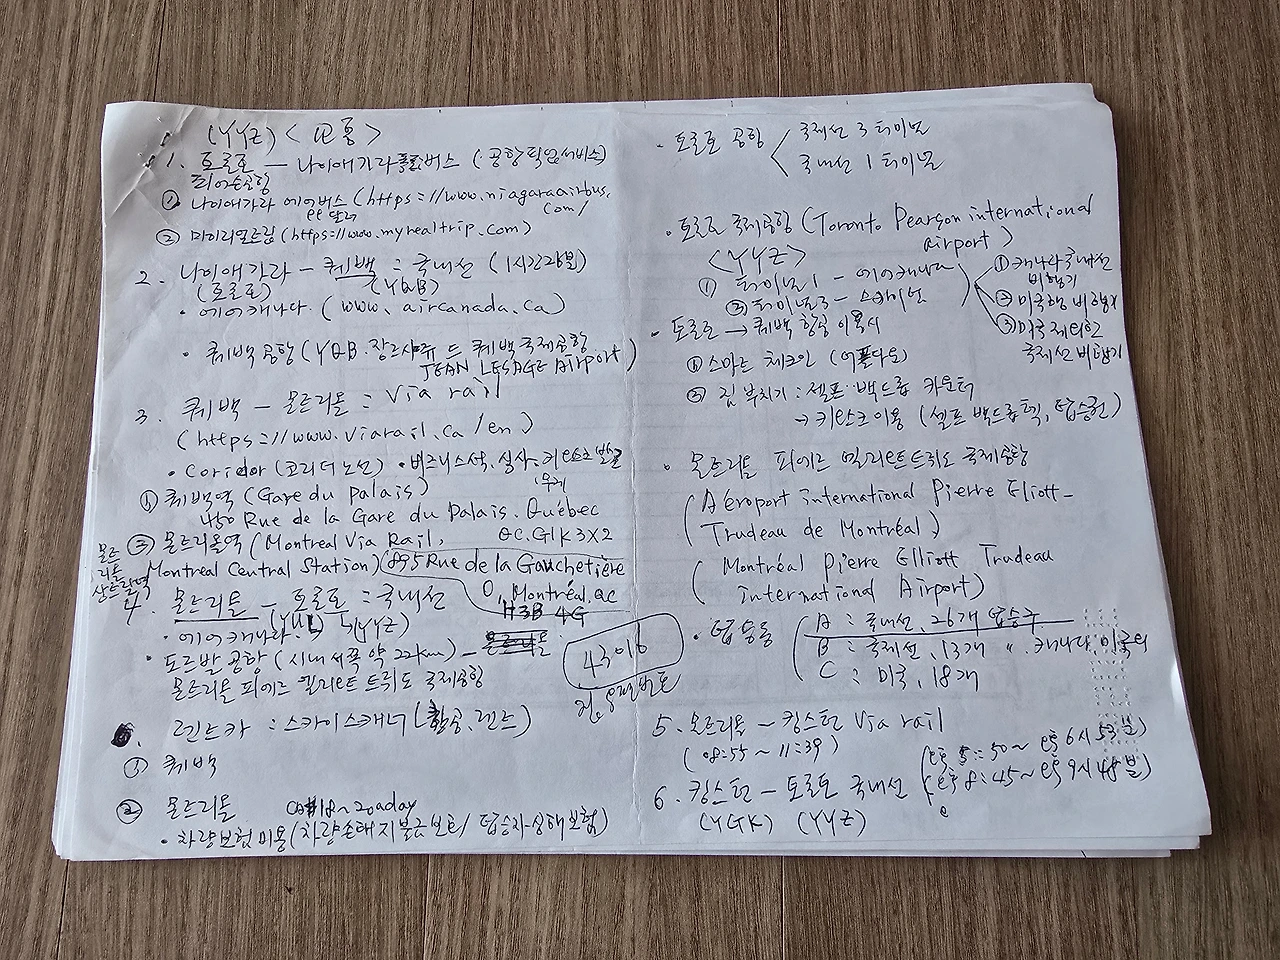 (YYZ) <교통>
1. 토론토 — 나이애가라 버스 (공항픽업서비스)
피어슨공항
① 나이애가라 에어버스 (https://www.niagaraairbus.
com/
99달러
② 마이리얼트립 (https://www.myrealtrip.com)
2. 나이애가라 - 퀘백 : 국내선 (1시간26분)
(토론토) (YQB)
· 에어캐나다 (www.aircanada.ca)
· 퀘백공항 (YQB. 장르사쥬 드 퀘백국제공항
JEAN LESAGE Airport)
3. 퀘백 - 몬트리올 : via rail
(https://www.viarail.ca/en)
· Coridor (코리더노선) · 비즈니스석, 식사,
① 퀘백역 (Gare du palais)
450 Rue de la Gare du Palais. Québec
QC.G1K3X2
② 몬트리올역 (Montreal Via Rail,
Montreal Central Station) (895 Rue de la Gauchetière
O,, Montréal.QC
H3B 4G
몬트
리올
센트럴역
4. 몬트리올 - 토론토 : 국내선
(YUL) (YYZ)
· 에어캐나다.
· 도르발공항 (시내서쪽 약 22km) -
몬트리올 피에르 엘리어트 트뤼도 국제공항
43016
우편번호
렌트카 : 스카이스캐너 (항공.렌트)
① 퀘백
② 몬트리올 CA$18~20aday
· 차량보험비용 (차량손해지불금보트/ 탑승자상해보험)
· 토론토 공항 국제선 3 터미널
국내선 1 터미널
· 토론토 국제공항 (Toronto Pearson international
airport)
<YYZ>
① 터미널1 - 에어캐나다
③ 터미널3 - 스카이넌
① 캐나다국내선
비행기
② 미국행 비행기
③ 미국제외한
국제선 비행기
· 토론토 → 퀘백 항공 이용시
① 스마트 체크인 (어플다오)
② 짐 부치기 : 셀프 백드롭 카운터
→ 키오스크 이용 (셀프 백드롭텍, 탑승권)
· 몬트리올 피에르 엘리어트 트뤼도 국제공항
(Aéroport international Pierre Eliott-
Trudeau de Montréal)
(Montréal Pierre Elliott Trudeau
International Airport)
· 탑승동 A : 국내선, 26개 탑승구
B : 국제선, 13개 〃. 캐나다, 미국외
C : 미국, 18개
5. 몬트리올 - 킹스턴 Via rail
(08:55 ~ 11:39)
6. 킹스턴 - 토론토 국내선
(YGK) (YYZ)
5:50 ~ 6시 53분)
8:45 ~ 9시 48분)